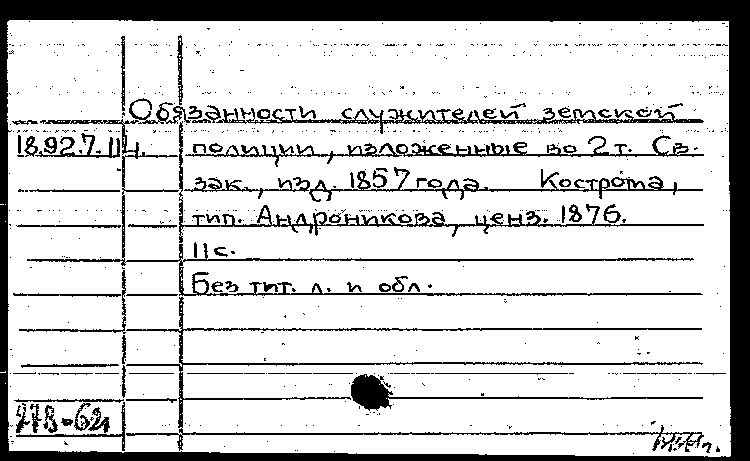 Обязанности служителей земской
18.92.7.114. полиции, изложенные во 2 т. Св.
зак., изд. 1857 года. Кострома,
тип. Андроникова, ценз. 1876.
11 с.
Без тит. л. и обл.
278-62